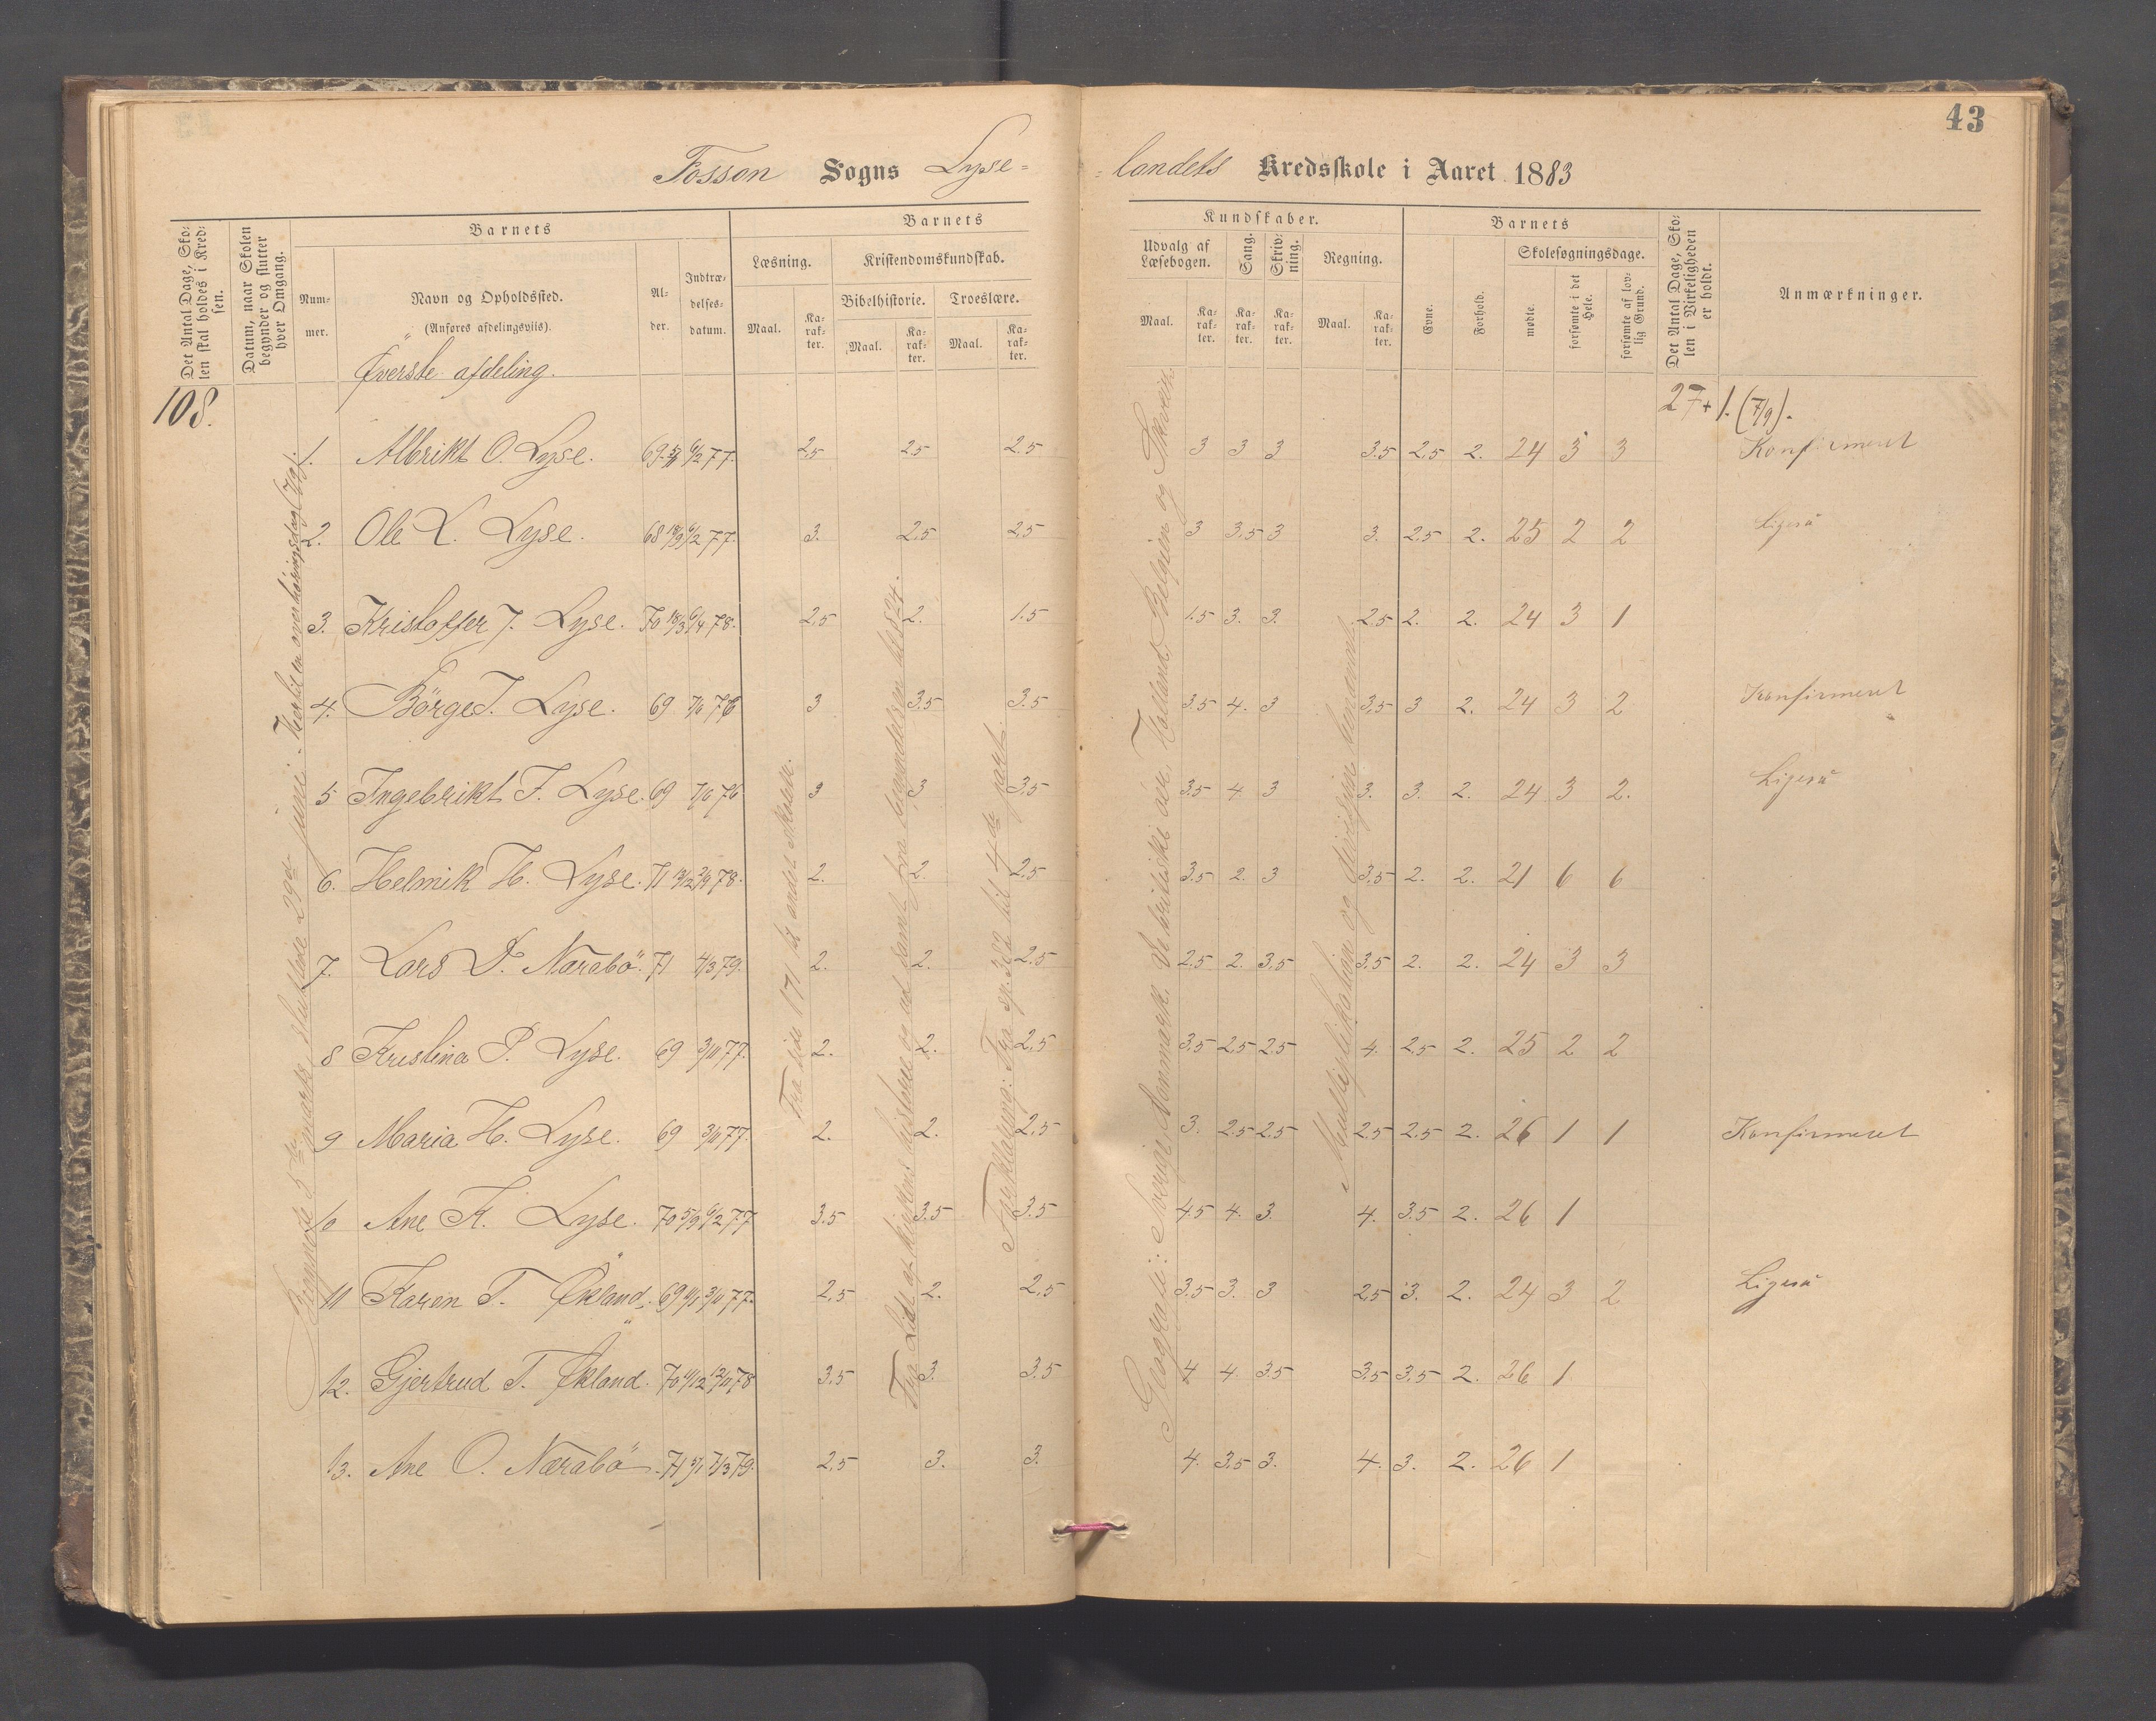 43
Fosson Sogns Lyse=
=landets Kredsskole i Aaret 1883
Det Antal Dage, Skolen skal holdes i Kredsen.
Datum, naar Skolen begynder og slutter hver Omgang.
Barnets
Barnets
Kundskaber.
Barnets
Det Antal Dage, Skolen i Virkeligheden er holdt.
Anmærkninger.
Nummer.
Navn og Opholdssted.
(Anføres afdelingsviis).
Alder.
Indtrædelsesdatum.
Læsning.
Kristendomskundskab.
Bibelhistorie.
Troeslære.
Maal. Karakter. Maal. Karakter. Maal. Karakter.
Udvalg af Læsebogen.
Sang.
Skrivning.
Regning.
Maal. Karakter. Karakter. Karakter. Maal. Karakter.
Evne.
Forhold.
Skolesøgningsdage.
mødte.
forsømte i det Hele.
forsømte af lovlig Grund.
Øverste afdeling.
108. 27+1. (7/9).
1. Albrikt O. Lyse. 69 6/2 77. 2.5 2.5 2.5 3 3 3 3.5 2.5 2. 24 3 3 Konfirmeret
2. Ole L. Lyse. 68 18/9 6/2 77. 3. 2.5 2.5 3 3.5 3 3. 2.5 2. 25 2 2 Ligeså
3. Kristoffer J. Lyse. 70 18/3 6/4 78. 2.5 2. 1.5 1.5 3. 3. 2.5 2. 2. 24 3 1
4. Börge T. Lyse. 69 7/6 76 3 3.5 3.5 3.5 4. 3 3.5 3 2. 24 3 2 Konfirmeret
5 Ingebrikt F. Lyse. 69 7/6 76 3 3 3.5 3.5 4 3 3. 3. 2. 24 3 2. Ligeså
6. Helmik H. Lyse. 71 13/2 2/9 78. 2. 2. 2.5 3.5 2. 3 3.5 2. 2. 21 6 6
7. Lars D. Nærabö. 71 4/3 79. 2. 2. 2.5 2.5 2. 3.5 3.5 2. 2. 24 3 3
8 Kristina P. Lyse. 69 3/11 77. 2. 2. 2.5 3.5 2.5 2.5 4. 2.5 2. 25 2 2
9 Maria H. Lyse. 69 3/11 77. 2. 2. 2.5 3. 2.5 2.5 2.5 2.5 2. 26 1 1 Konfirmeret
10 Ane K. Lyse. 70 5/9 6/2 77 3.5 3.5 3.5 4.5 4. 3. 4. 3.5 2. 26 1
11 Karen T. Økland. 69 3/11 77. 2.5 2. 2.5 3.5 3. 3 2.5 3. 2. 24 3 2 Ligeså
12. Gjertrud T. Økland. 70 11/12 12/11 78 3.5 3. 3.5 4 4 3.5 3.5 3.5 2. 26 1
13. Ane O. Nærabö. 71 5/1 7/3 79. 2.5 3. 3. 4. 3.5 3. 4. 3. 2. 26 1
Begyndte 5te marts sluttede 29de juni. Hertil en overhøringsdag (7/9).
Fra side 171 til andet skolen.
Fra Lidt af kirkens historie og ud samt fra
Forklaring: Fra sp. 302 til 4de part.
Geografi: Sverige, Danmark. De britiske øer, Holland, Belgien og Schweiz.
Multiplikation og Division